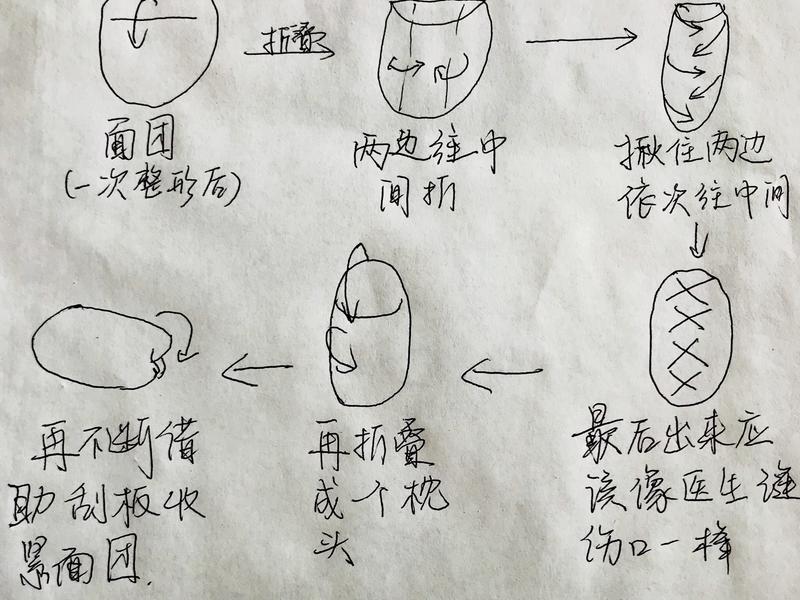 折叠
面团
(一次整形后)
两边往中
间折
揪住两边
依次往中间
最后出来应
该像医生缝
伤口一样
再折叠
成个枕
头
再不断借
助刮板收
紧面团.